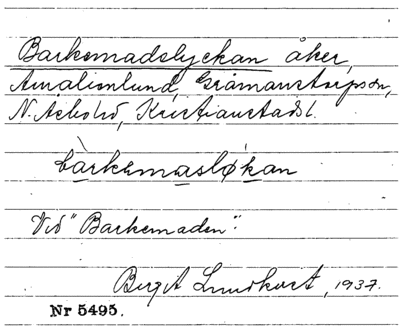 Barkemadslyckan åker,
Amalienlund, Gråmanstorpssn,
N. Åsbohd, Kristianstadsl.
bàrkemasløkan
Vid "Barkemaden".
Birgit Lundkvist, 1937.
Nr 5495.